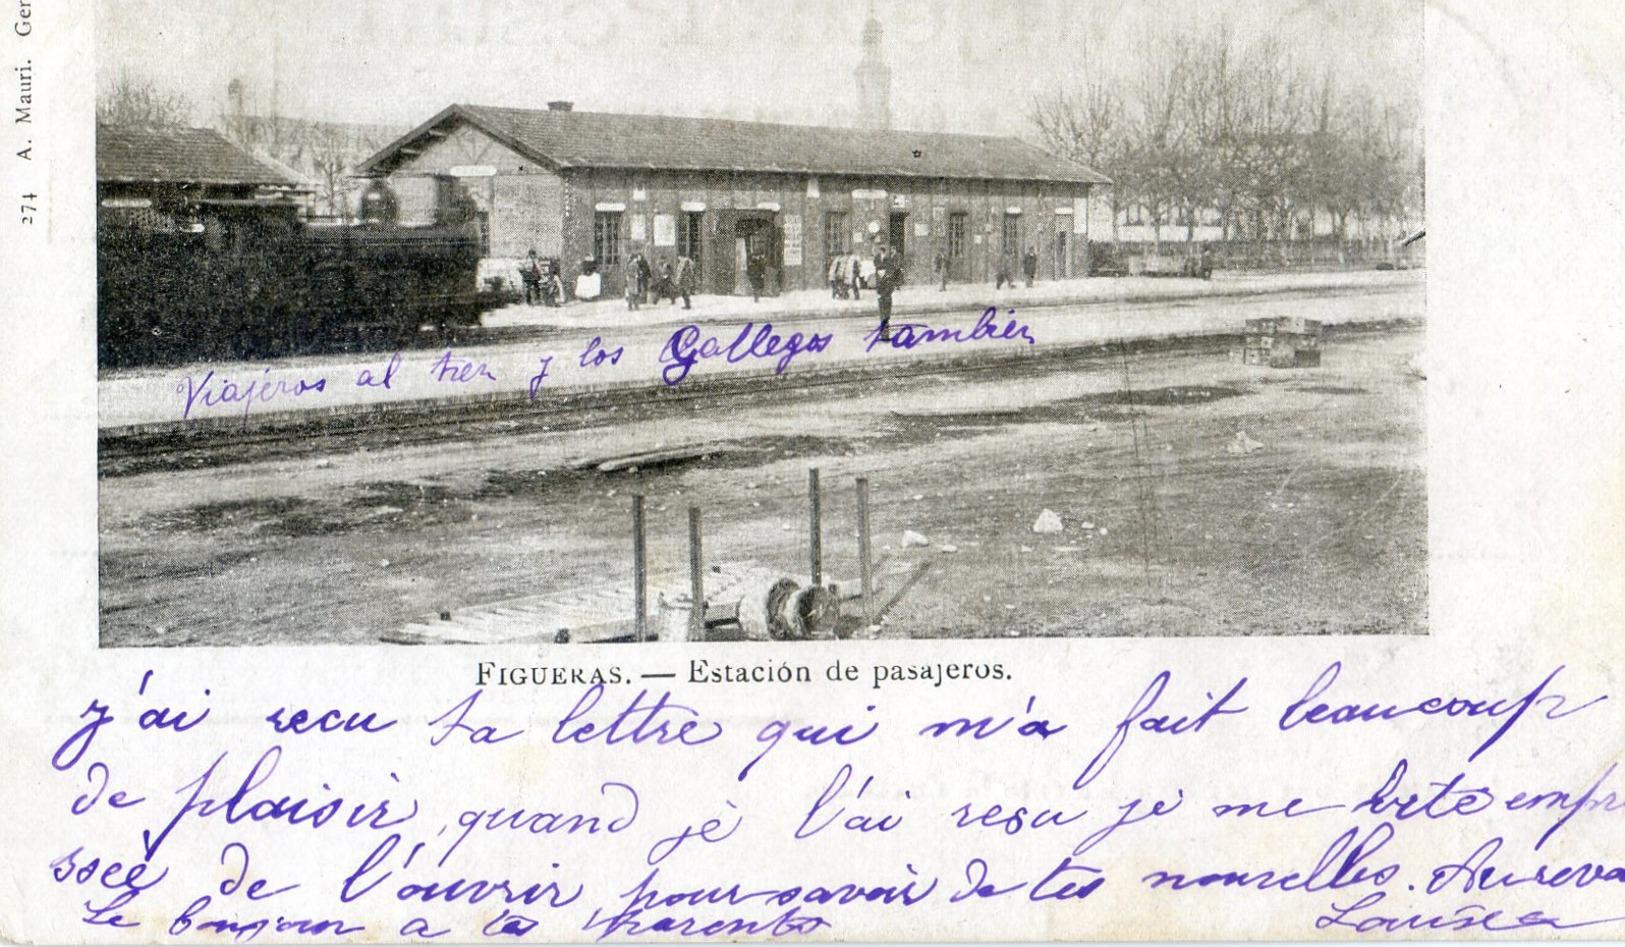 274 A. Mauri. Ger
Viajeros al tren y los Gallegos tambien
FIGUERAS. — Estación de pasajeros.
j'ai recu ta lettre qui m'a fait beaucoup
de plaisir, quand je l'ai resu je me
ssée de l'ouvrir pour savoir de tes nouvelles. Au reva
Le bonjour a tes parents
Louise